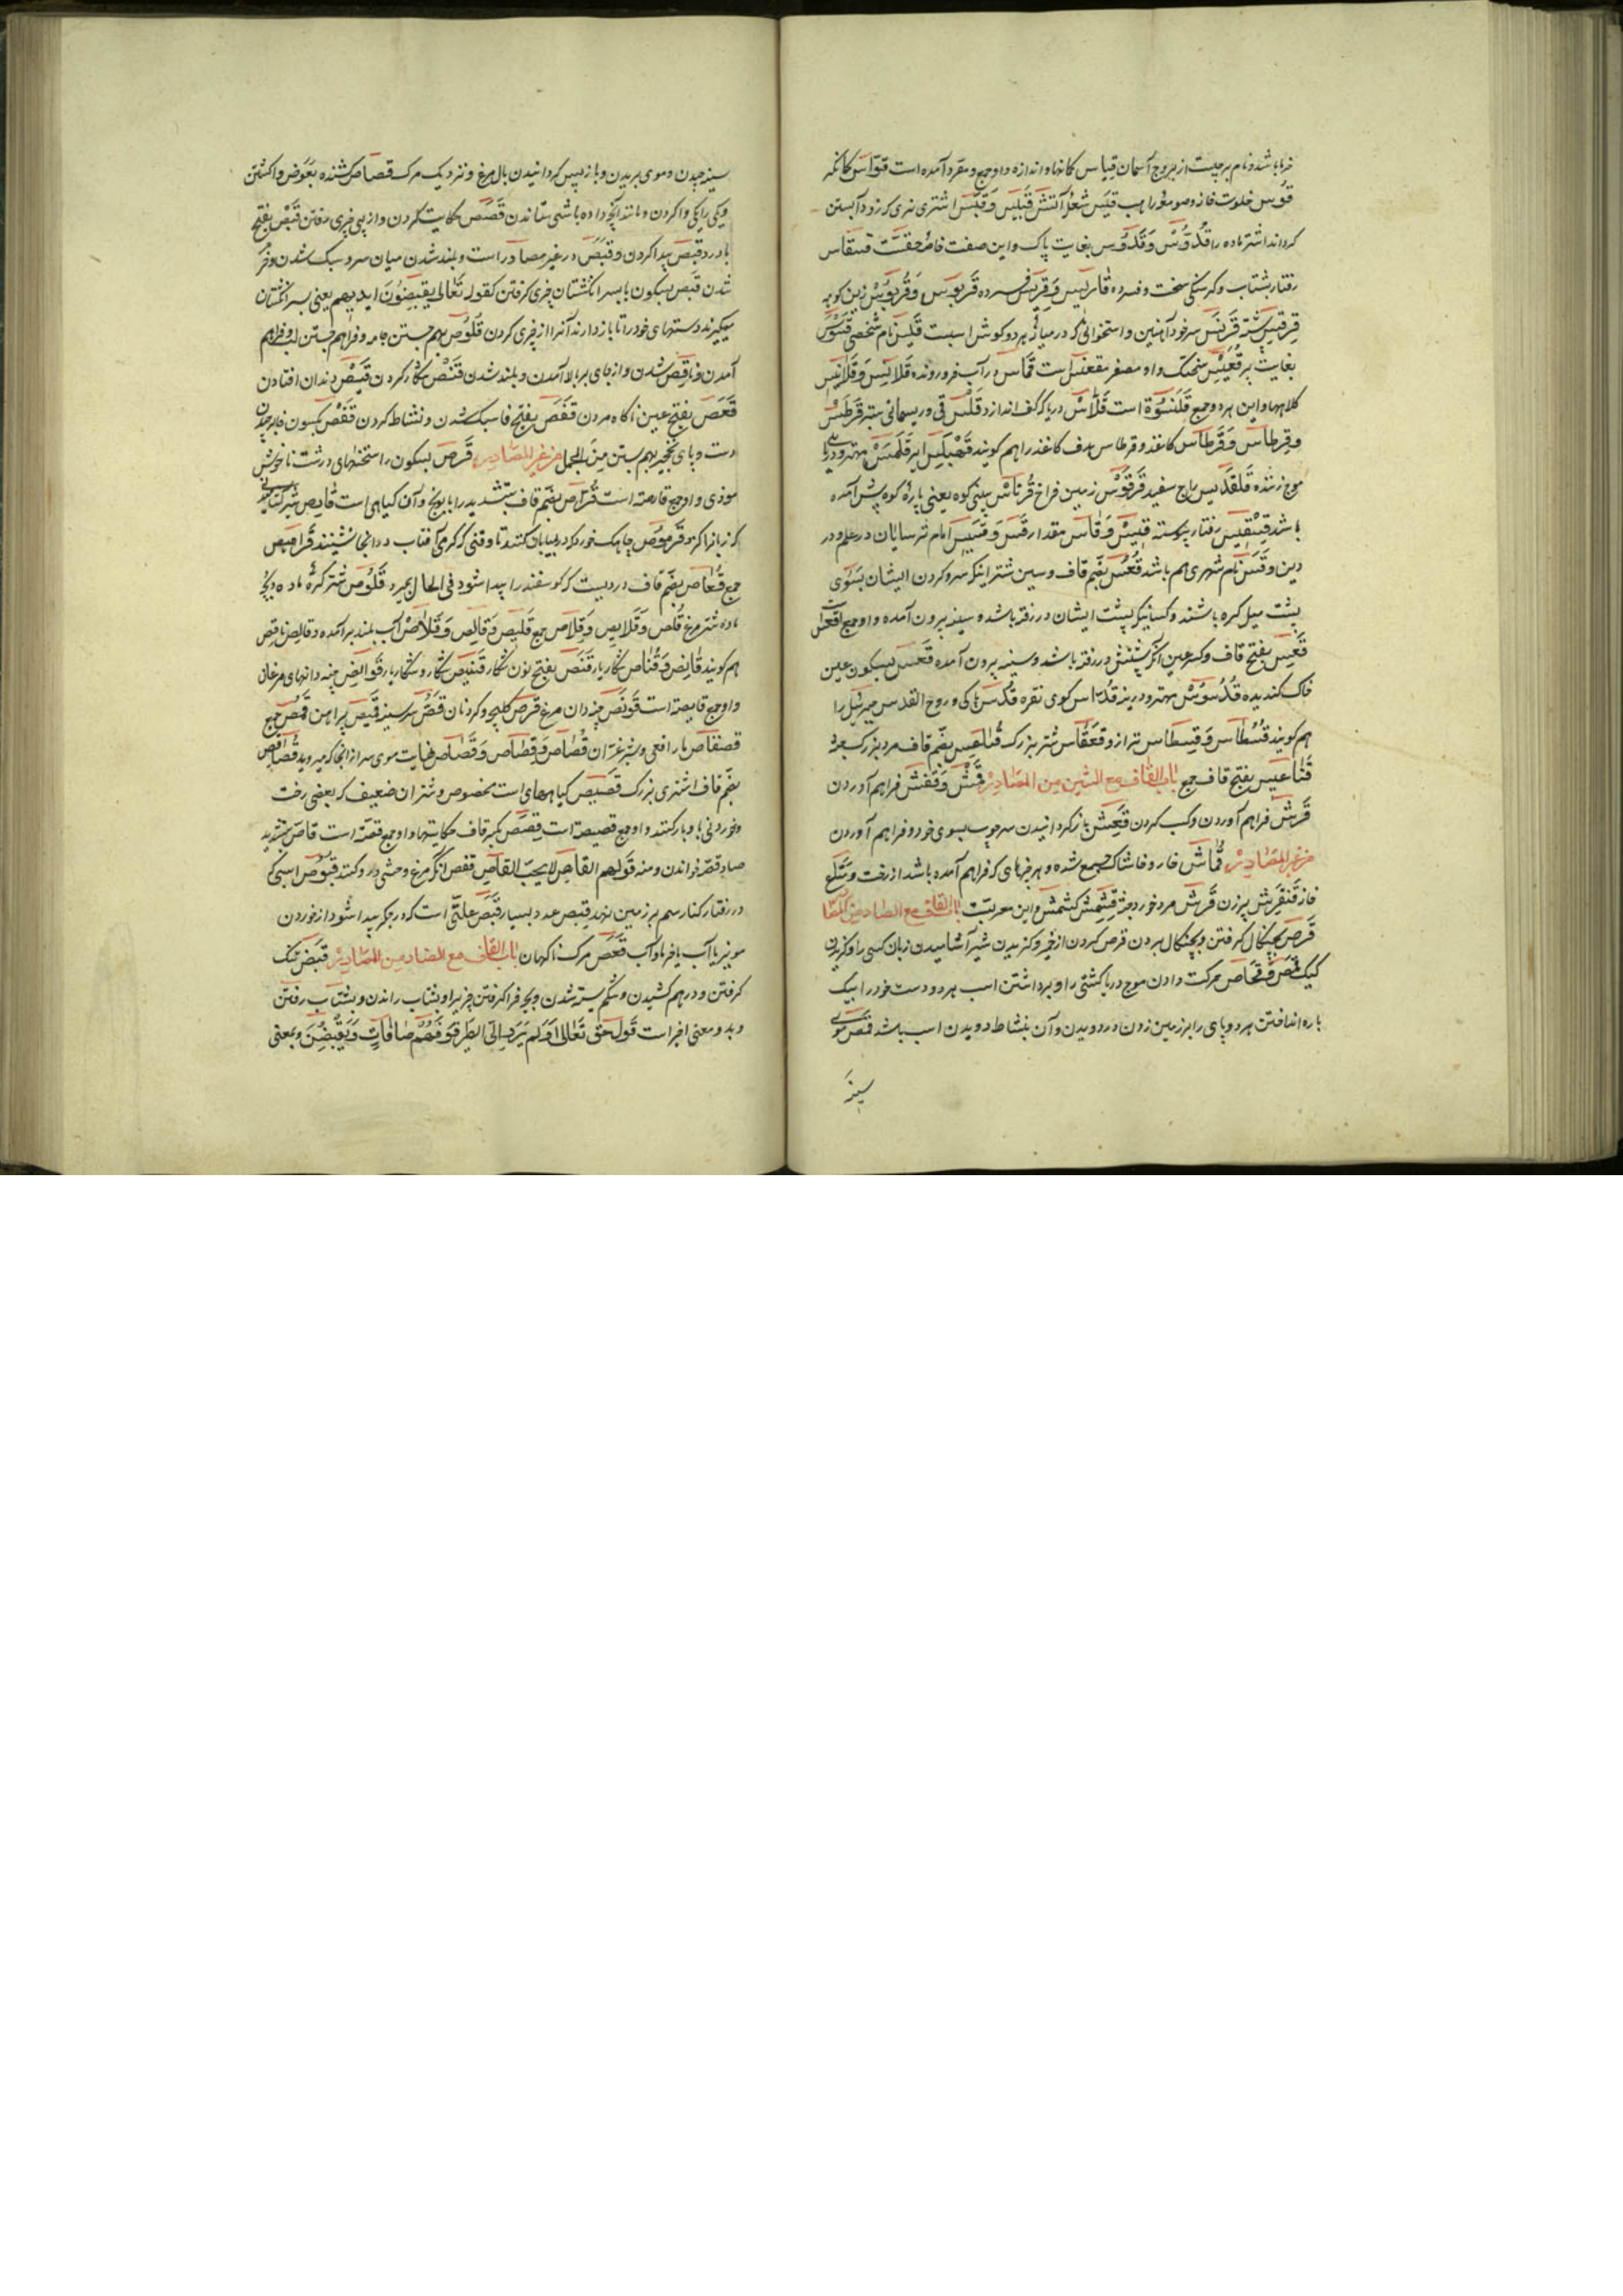 خرما باشد و نام برجیست از بروج آسمان قیاس کمانها و اندازه و او جمع و مفرد آمده است قوّاس کمانگر
قوس خلوت خانه و صومعهٔ راهب قبس شعلهٔ آتش قبیس و قبس اشتری نری که زود آبستن
گرداند اشتر ماده را قُدّوس و قَدّوس بغایت پاک و این صفت خاصهٔ حقست قسقاس
رفتار بشتاب و گرسنگی سخت و فسرده قارس و قریس فسرده قربوس و قربوس زین کوهه
قرقس پشه قرنس سر خود آهنین و استخوانی که در میانهٔ هر دو گوش اسبست قیس نام شخصی
بغایت پر قعیس منحنک و او مصغر مقعنسس است قمّاس در آب فرو رونده قلانس و قلانیس
کلاهها و این هر دو جمع قلنسوة است قلّاس دریا که کف اندازد قلس قی و ریسمانی ستبر قرطس
و قرطاس و قرطاس کاغذ و قرطاس هدف کاغذ را هم گویند قلمس مهتر و دریای
موج زننده قلقدیس زاج سفید قرقوس زمین فراخ قرناس بینی کوه یعنی پارهٔ کوه پیش آمده
باشد رفتار پیوسته قیس و قاس مقدار قس و قسیس امام ترسایان در علم و در
دین و قس نام شهری هم باشد قعس بضم قاف و سین شتر اینکه سر و گردن ایشان بسوی
پشت میل کرده باشند و کسانیکه پشت ایشان در رفته باشد و سینه بیرون آمده و او جمع اقعس
قعس بفتح قاف و کسر عین آنکه پشتش در رفته باشد و سینه بیرون آمده قعس بسکون عین
خاک گندیده قدموس مهتر و دیرینه قداس گوی نقره قدس پاکی و روح القدس جبرئیل را
هم گویند قسطاس و قسطاس ترازو قعقاس شتر بزرگ قناعیس بضم قاف مرد بزرگ
قناعیس بفتح قاف جمع باب القاف مع الشین من المصادر قمش و قفش فراهم آوردن
قرش فراهم آوردن و کسب کردن قعش بازگردانیدن سر چوب بسوی خود و فراهم آوردن
من غیر المصادر قماش خار و خاشاک جمع شده و هر چیزهای که فراهم آمده باشد از رخت و متاع
خانه قنفرش پیر زن قرش مرد خورد جثه قشمش کشمش و این معربست باب القاف مع الصاد من المصادر
قرص بچنگال گرفتن و بچنگال بردن قرص کردن از خمیر و گزیدن شیر آشامیدن زبان کسی را و گزیدن
کیک قمص و قماص حرکت دادن موج دریا کشتی را و برداشتن اسب هر دو دست خود را بیک
باره انداختن هر دو پای را بر زمین زدن در دویدن و آن بنشاط دویدن اسب باشد قص موی
سینه
سینه چیدن و موی بریدن و باز پس گردانیدن بال مرغ و نزدیک مرگ قصاص کشنده بعوض واکشتن
و یکی را یکی واکردن و مانند آنچه داده باشی ستاندن قصص حکایت کردن و از پی چیزی رفتن قبص بفتح
با درد قبص پیدا کردن و قبص در غیر مصادر است و بلند شدن میان سر و سبک شدن و خرّم
شدن قبص بسکون با بسر انگشتان چیزی گرفتن کقوله تعالی یقبضون ایدیهم یعنی بسر انگشتان
میگیرند دستهای خود را تا باز دارند آنرا از چیزی کردن قلوص بهم جستن جامه و فراهم جستن لب و فراهم
آمدن و ناقص شدن و از جای بر بالا آمدن و بلند شدن قنص شکار کردن قیص دندان افتادن
قعص بفتح عین ناگاه مردن قفص بفتح فا سبک شدن و نشاط کردن قفص بسکون فا
دست و پای نخجیر بهم بستن من المجمل من غیر المصادر قرص بسکون را سخنهای درشت ناخوش
موذی و او جمع قارصة است قرّاص بضم قاف بتشدید را بابونج و آن گیاهی است قارص شیر
که زبانرا گزد قرموص چاهک خورد که در بیابان کنند تا وقتی که گرمی آفتاب در آنجا نشینند قرامیص
جمع قعاص بضم قاف دردیست که گوسفند را پیدا شود فی الحال بمیرد قلوص شتر کرهٔ ماده و بچهٔ
ماده شتر مرغ قلص و قلایص و قلاص جمع قلیص و قالص و قلّاص آب بلند بر آمده و قالص ناقص
هم گویند قانص و قنّاص شکار یار قنص بفتح نون شکار قنیص شکار و شکار یار قوانص چینه دانهای مرغان
و او جمع قانصة است قونص چینه دان مرغ قرص کلیچه و گرد نان قص سر سینه قمیص پیراهن قمص جمع
قصقاص مار افعی و شیر غرّان قصاص و قصاص و قصاص نهایت موی سر از انجا که میروید قصاقص
بضم قاف اشتری بزرگ قصیص گیاههای است مخصوص و شتران ضعیف که بعضی رخت
و خوردنی بآن بار کنند و او جمع قصیصة است قصص بکسر قاف حکایتها و او جمع قصّة است قاصّ بتشدید
صاد قصّه خواندن و منه قولهم القاص لا یحب القاص قفص آنکه مرغ و حشی دار و کنند قبوص اسبی که
در رفتار کنار سم بر زمین نزند قبص عدد بسیار قبص علتی است که در جگر پیدا شود از خوردن
مویز با آب یا خرما و آب قعص مرگ ناگهان باب القاف مع الضاد من المصادر قبض تنگ
گرفتن و در هم کشیدن و شکم بسته شدن و پنجه فرا گرفتن چیزیرا و بشتاب راندن و بشتاب رفتن
و بدو معنی اخیر است قول حق تعالی اولم یروا الی الطیر فوقهم صافات و یقبضن و بمعنی